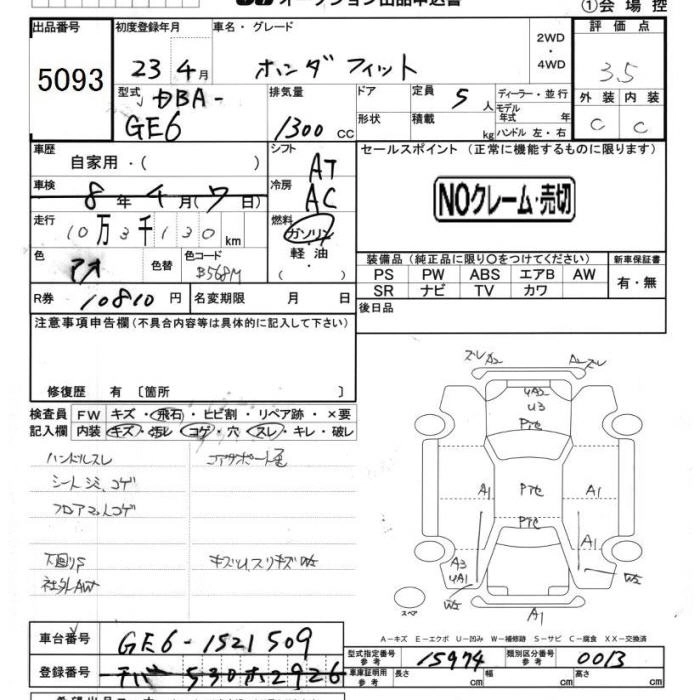 オークション出品申込書
①会場控
出品番号 初度登録年月 車名・グレード 2WD・4WD 評価点
5093 23 4月 ホンダ フィット 3.5
型式 DBA-GE6 排気量 1300 cc ドア 定員 5人 ディーラー・並行 外装 内装
形状 積載 kg モデル年式 年 ハンドル 左・右 C C
車歴 シフト AT セールスポイント (正常に機能するものに限ります)
自家用・( )
車検 8年4月7日) 冷房 AC NOクレーム・売切
走行 10万3千130 km 燃料 ガソリン
軽油
( )
色 アオ 色替 色コード B568M
装備品(純正品に限り〇をつけてください) 新車保証書
PS PW ABS エアB AW 有・無
SR ナビ TV カワ
R券 10810円 名変期限 月 日 後日品
注意事項申告欄(不具合内容等は具体的に記入して下さい)
修復歴 有 〔箇所 〕
検査員 FW キズ・飛石・ヒビ割・リペア跡・×要
記入欄 内装 キズ・汚レ・コゲ・穴・スレ・キレ・破レ
ハンドルスレ
シートシミ、コゲ
フロアマットコゲ
下回りS
社外AW
ズレ A2 A2 ズレ
YA2
U3
Pアセ
A1 Pアセ A1
Pアセ
A1
A3
YA1
W2 W2
A1
スペア
A－キズ E－エクボ U－凹み W－補修跡 S－サビ C－腐食 XX－交換済
車台番号 GE6-1521509 型式指定番号 参考 15974 類別区分番号 参考 0013
登録番号 530 ホ 2926 車庫証明用 参考 長さ cm 幅 cm 高さ cm